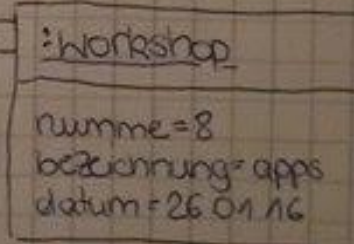 :Workshop
numme=8
bezeichnung=apps
datum=26.01.16